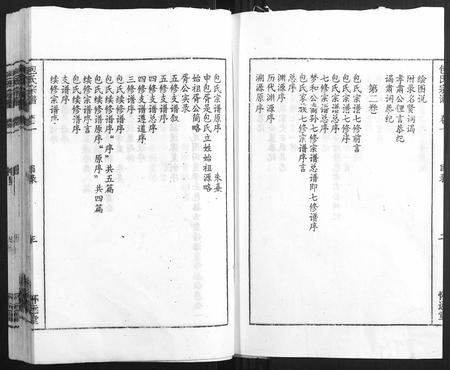 包氏宗谱 卷一
目录
二
怀远堂
绘图说
附录名贤词谒
孝肃公俚言恭纪
谒肃词恭纪
第二卷
包氏宗谱七修前言
包氏宗谱七修序
包氏宗谱总序
七修宗谱总序
梦和公南孙七修宗谱总谱即七修谱序
包氏家族七修宗谱序言
总序
渊源序
历代渊源序
溯源原序
包氏宗谱原序 朱熹
申包胥是包氏立姓始祖源略
始祖胥公简略
胥公实录
五修支谱叙
五修支谱序
四修支谱总序
四修支谱遵道序
三修谱序
包氏续修谱“序”共五篇
包氏续修谱原序“原序”共四篇
续修宗谱序言
续修宗谱序
支谱序
包氏宗谱 卷一
目录
三
怀远堂